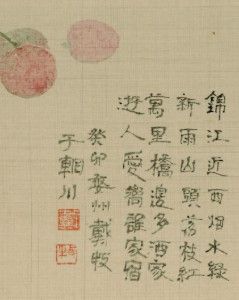 錦江近西烟水綠
新雨山頭荔枝紅
萬里橋邊多酒家
遊人愛嚮誰家宿
癸卯婺州戴牧
于輞川